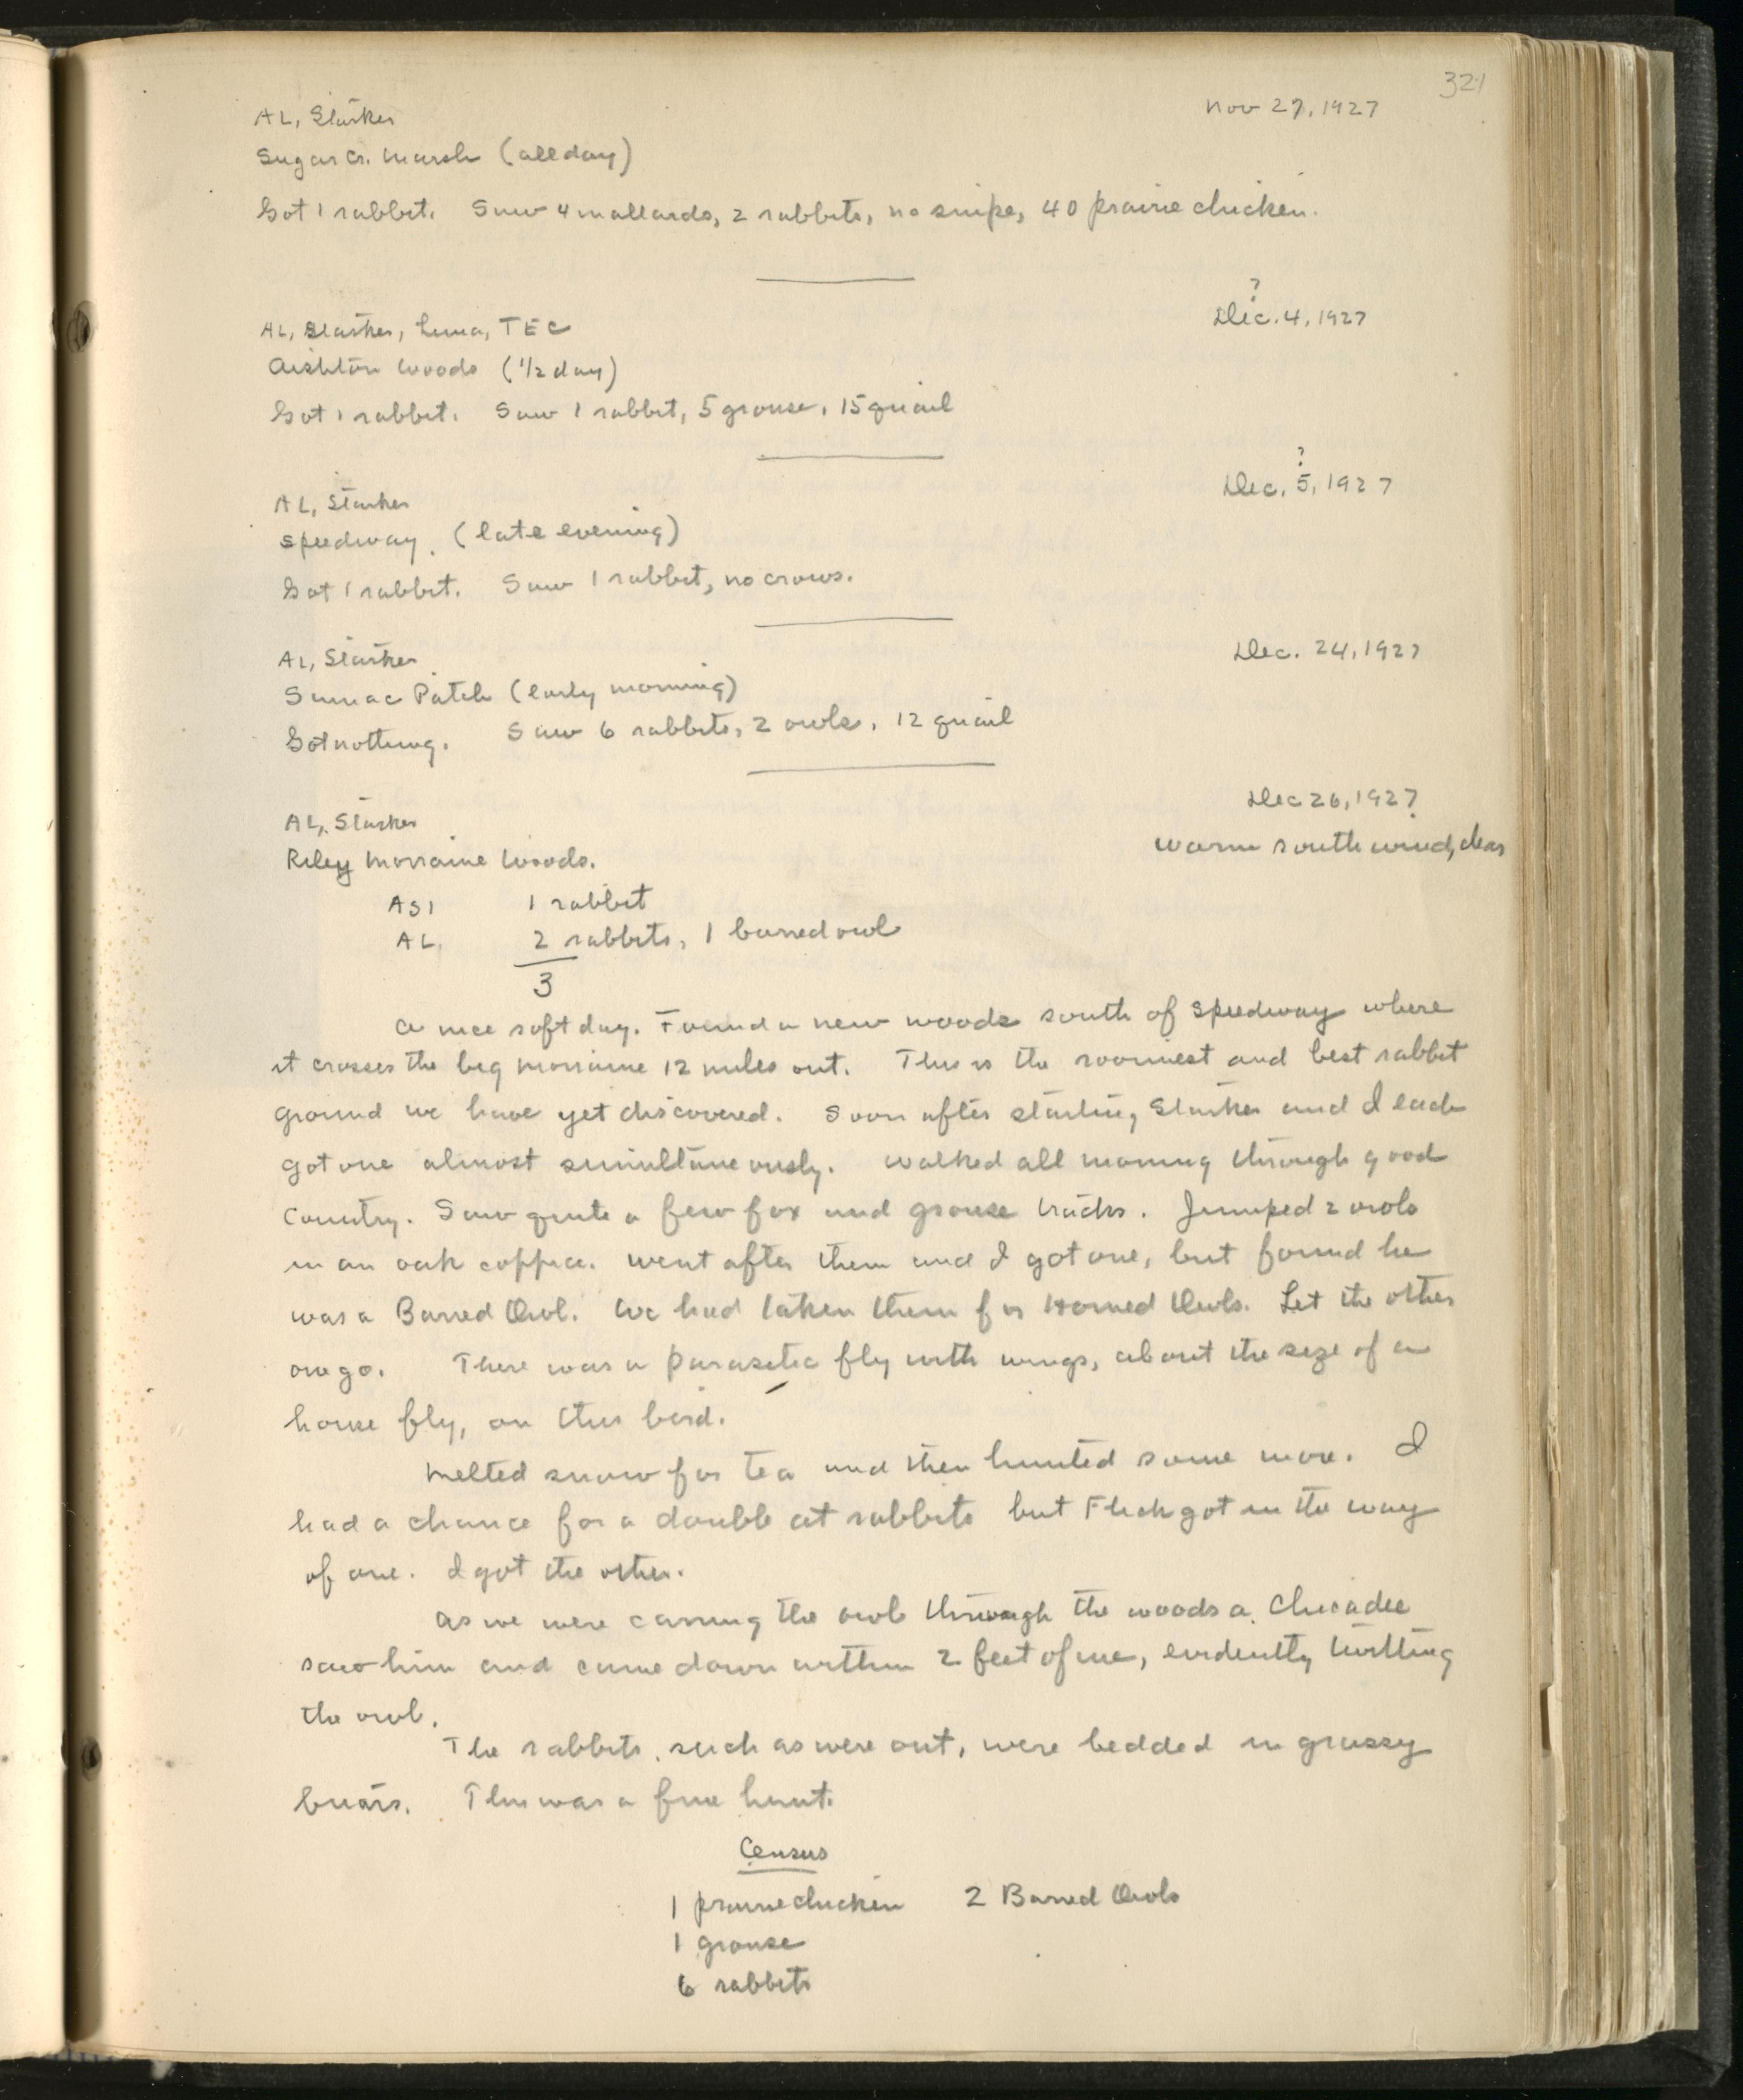 321
AL, Starker
Nov 27, 1927
Sugar Cr. Marsh (all day)
Got 1 rabbit. Saw 4 mallards, 2 rabbits, no snipe, 40 prairie chicken.
?
AL, Starker, Luna, TEC
Dec. 4, 1927
Aishton Woods (1/2 day)
Got 1 rabbit. Saw 1 rabbit, 5 grouse, 15 quail
?
AL, Starker
Dec. 5, 1927
Speedway. (late evening)
Got 1 rabbit. Saw 1 rabbit, no crows.
AL, Starker
Dec. 24, 1927
Sumac Patch (early morning)
Got nothing. Saw 6 rabbits, 2 owls, 12 quail
Dec 26, 1927
AL, Starker
warm south wind, clear
Riley Morraine Woods.
ASL 1 rabbit
AL 2 rabbits, 1 barred owl
3
A nice soft day. Found a new woods south of Speedway where
it crosses the big morraine 12 miles out. This is the roomiest and best rabbit
ground we have yet discovered. Soon after starting Starker and I each
got one almost simultaneously. Walked all morning through good
country. Saw quite a few fox and grouse tracks. Jumped 2 owls
in an oak coppice. Went after them and I got one, but found he
was a Barred Owl. We had taken them for Horned Owls. Let the other
one go. There was a parasitic fly with wings, about the size of a
house fly, on this bird.
Melted snow for tea and then hunted some more. I
had a chance for a double at rabbits but Flick got in the way
of one. I got the other.
As we were carring the owl through the woods a Chicadee
saw him and came down within 2 feet of me, evidently twitting
the owl.
The rabbits, such as were out, were bedded in grassy
briars. This was a fine hunt.
Census
1 prairie chicken 2 Barred Owls
1 grouse
6 rabbits